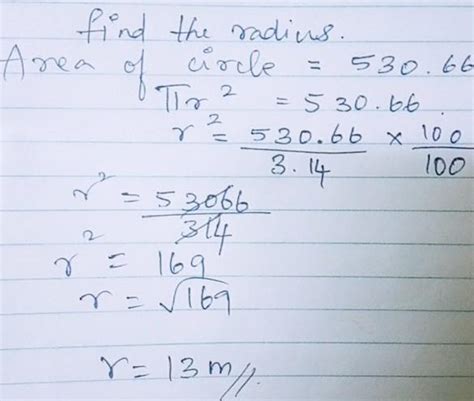 find the radius.
Area of circle = 530.66
πr² = 530.66
r² = 530.66/3.14 × 100/100
r² = 53066/314
r² = 169
r = √169
r = 13 m //.